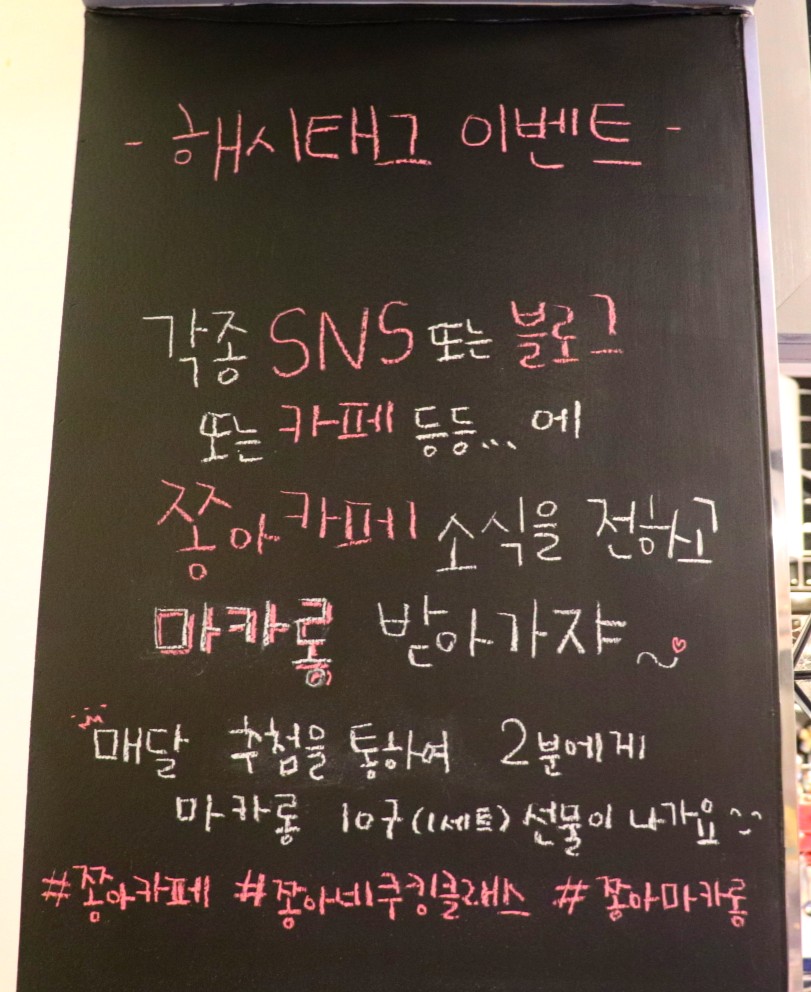 - 해시태그 이벤트 -
각종 SNS 또는 블로그
또는 카페 등등... 에
쫑아카페 소식을 전하고
마카롱 받아가쟈~♡
매달 추첨을 통하여 2분에게
마카롱 10구(1세트) 선물이 나가요^^
#쫑아카페 #쫑아네쿠킹클래스 #쫑아마카롱